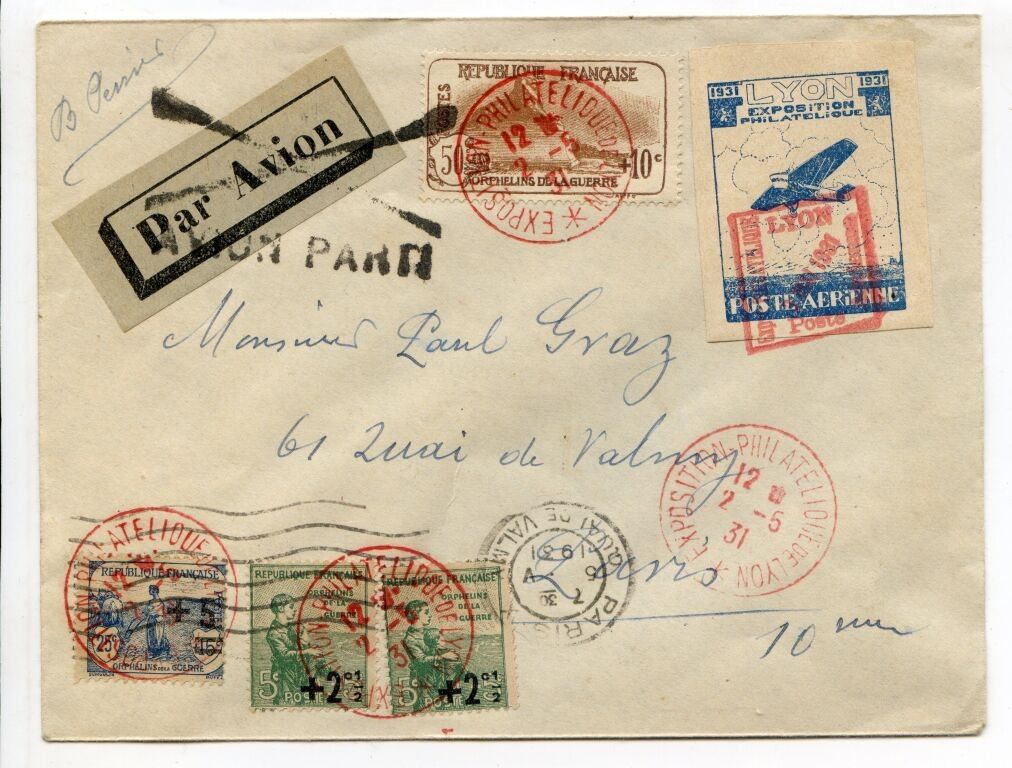 B Perrier
Par Avion
AVION PARTI
REPUBLIQUE FRANÇAISE
POSTES
50c +10c
ORPHELINS DE LA GUERRE
EXPOSITION PHILATELIQUE DE LYON
12
2 -5
31
1931 LYON 1931
EXPOSITION
PHILATELIQUE
POSTE AERIENNE
LYON
1931
Poste
Monsieur Paul Graz
61 Quai de Valmy
Paris
10 eme
EXPOSITION PHILATELIQUE DE LYON
12
2 -5
31
PARIS QUAI DE VALMY
1931
REPUBLIQUE FRANÇAISE
+5c
25c 15c
ORPHELINS DE LA GUERRE
REPUBLIQUE FRANÇAISE
ORPHELINS
DE LA
GUERRE
+2c1/2
5c POSTES
REPUBLIQUE FRANÇAISE
ORPHELINS
DE LA
GUERRE
+2c1/2
5c POSTES